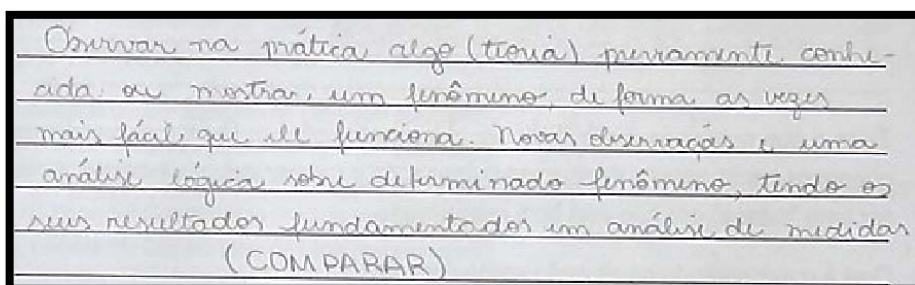 Observar na prática algo (teoria) previamente conhe-
cida ou mostrar, um fenômeno, de forma as vezes
mais fácil, que ele funciona. Novas observações e uma
análise lógica sobre determinado fenômeno, tendo os
seus resultados fundamentados em análise de medidas
(COMPARAR)